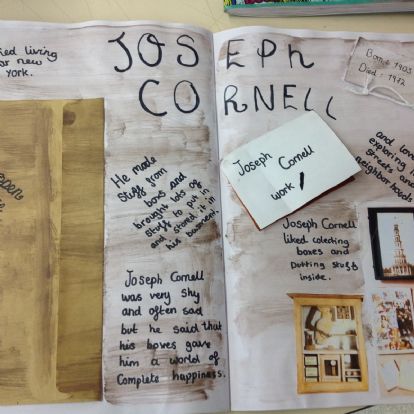 ked living
or new
York.
JOSEPH
CORNELL
Born: 1903
Died: 1972
He made
stuff from
boxs and
brought lots of
stuff to put in
and stored it in
his basment.
Joseph Cornell
was very shy
and often sad
but he said that
his boxes gave
him a world of
complete happiness.
Joseph Cornell
work
and love
exploring
streets
neighbor hoods
Joseph Cornell
liked colecting
boxes and
Putting stuff
inside.